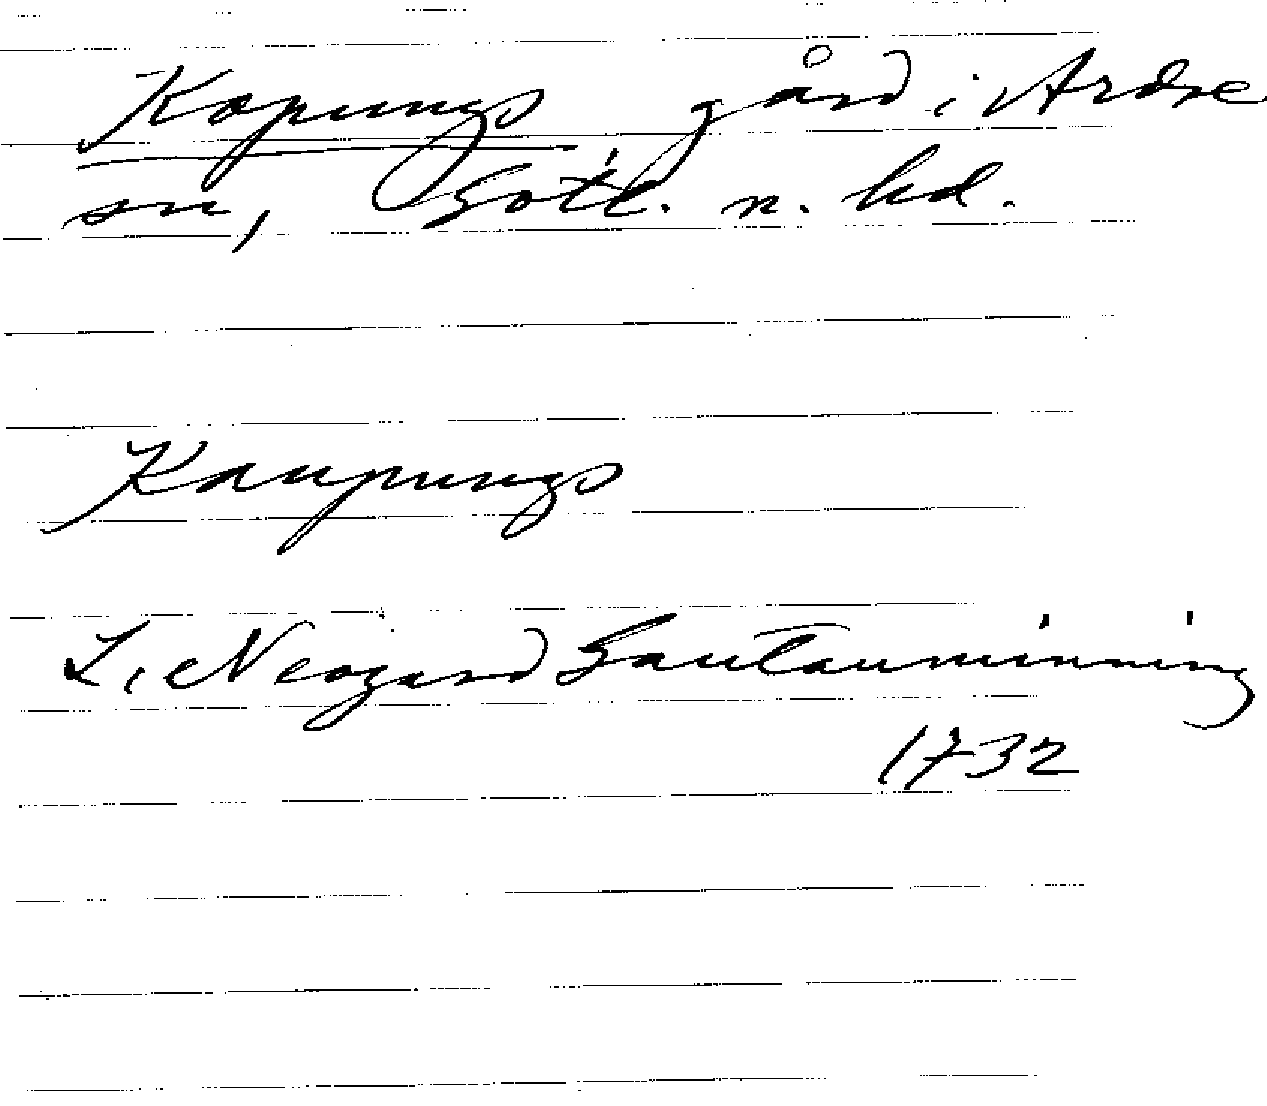 Kopungs gård i Ardre
sn, Gotl. n. hd.
Kaupungs
L. Neogard Gautauminning
1732